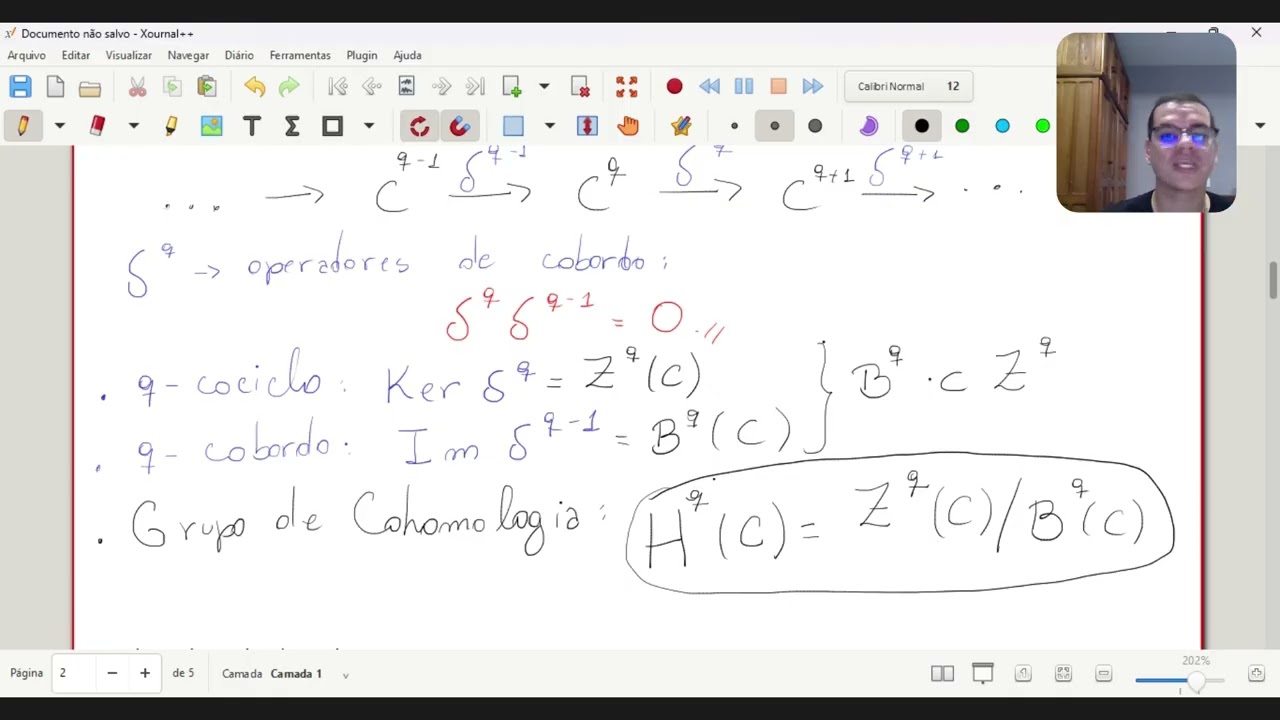 Documento não salvo - Xournal++
Arquivo Editar Visualizar Navegar Diário Ferramentas Plugin Ajuda
Calibri Normal 12
... → C^{q-1} δ^{q-1} → C^q δ^q → C^{q+1} δ^{q+1} → ...
δ^q → operadores de cobordo:
δ^q δ^{q-1} = 0.//
. q-cociclo: Ker δ^q = Z^q(C) } B^q ⊂ Z^q
. q-cobordo: Im δ^{q-1} = B^q(C)
. Grupo de Cohomologia: H^q(C) = Z^q(C)/B^q(C)
202%
Página 2 de 5 Camada Camada 1